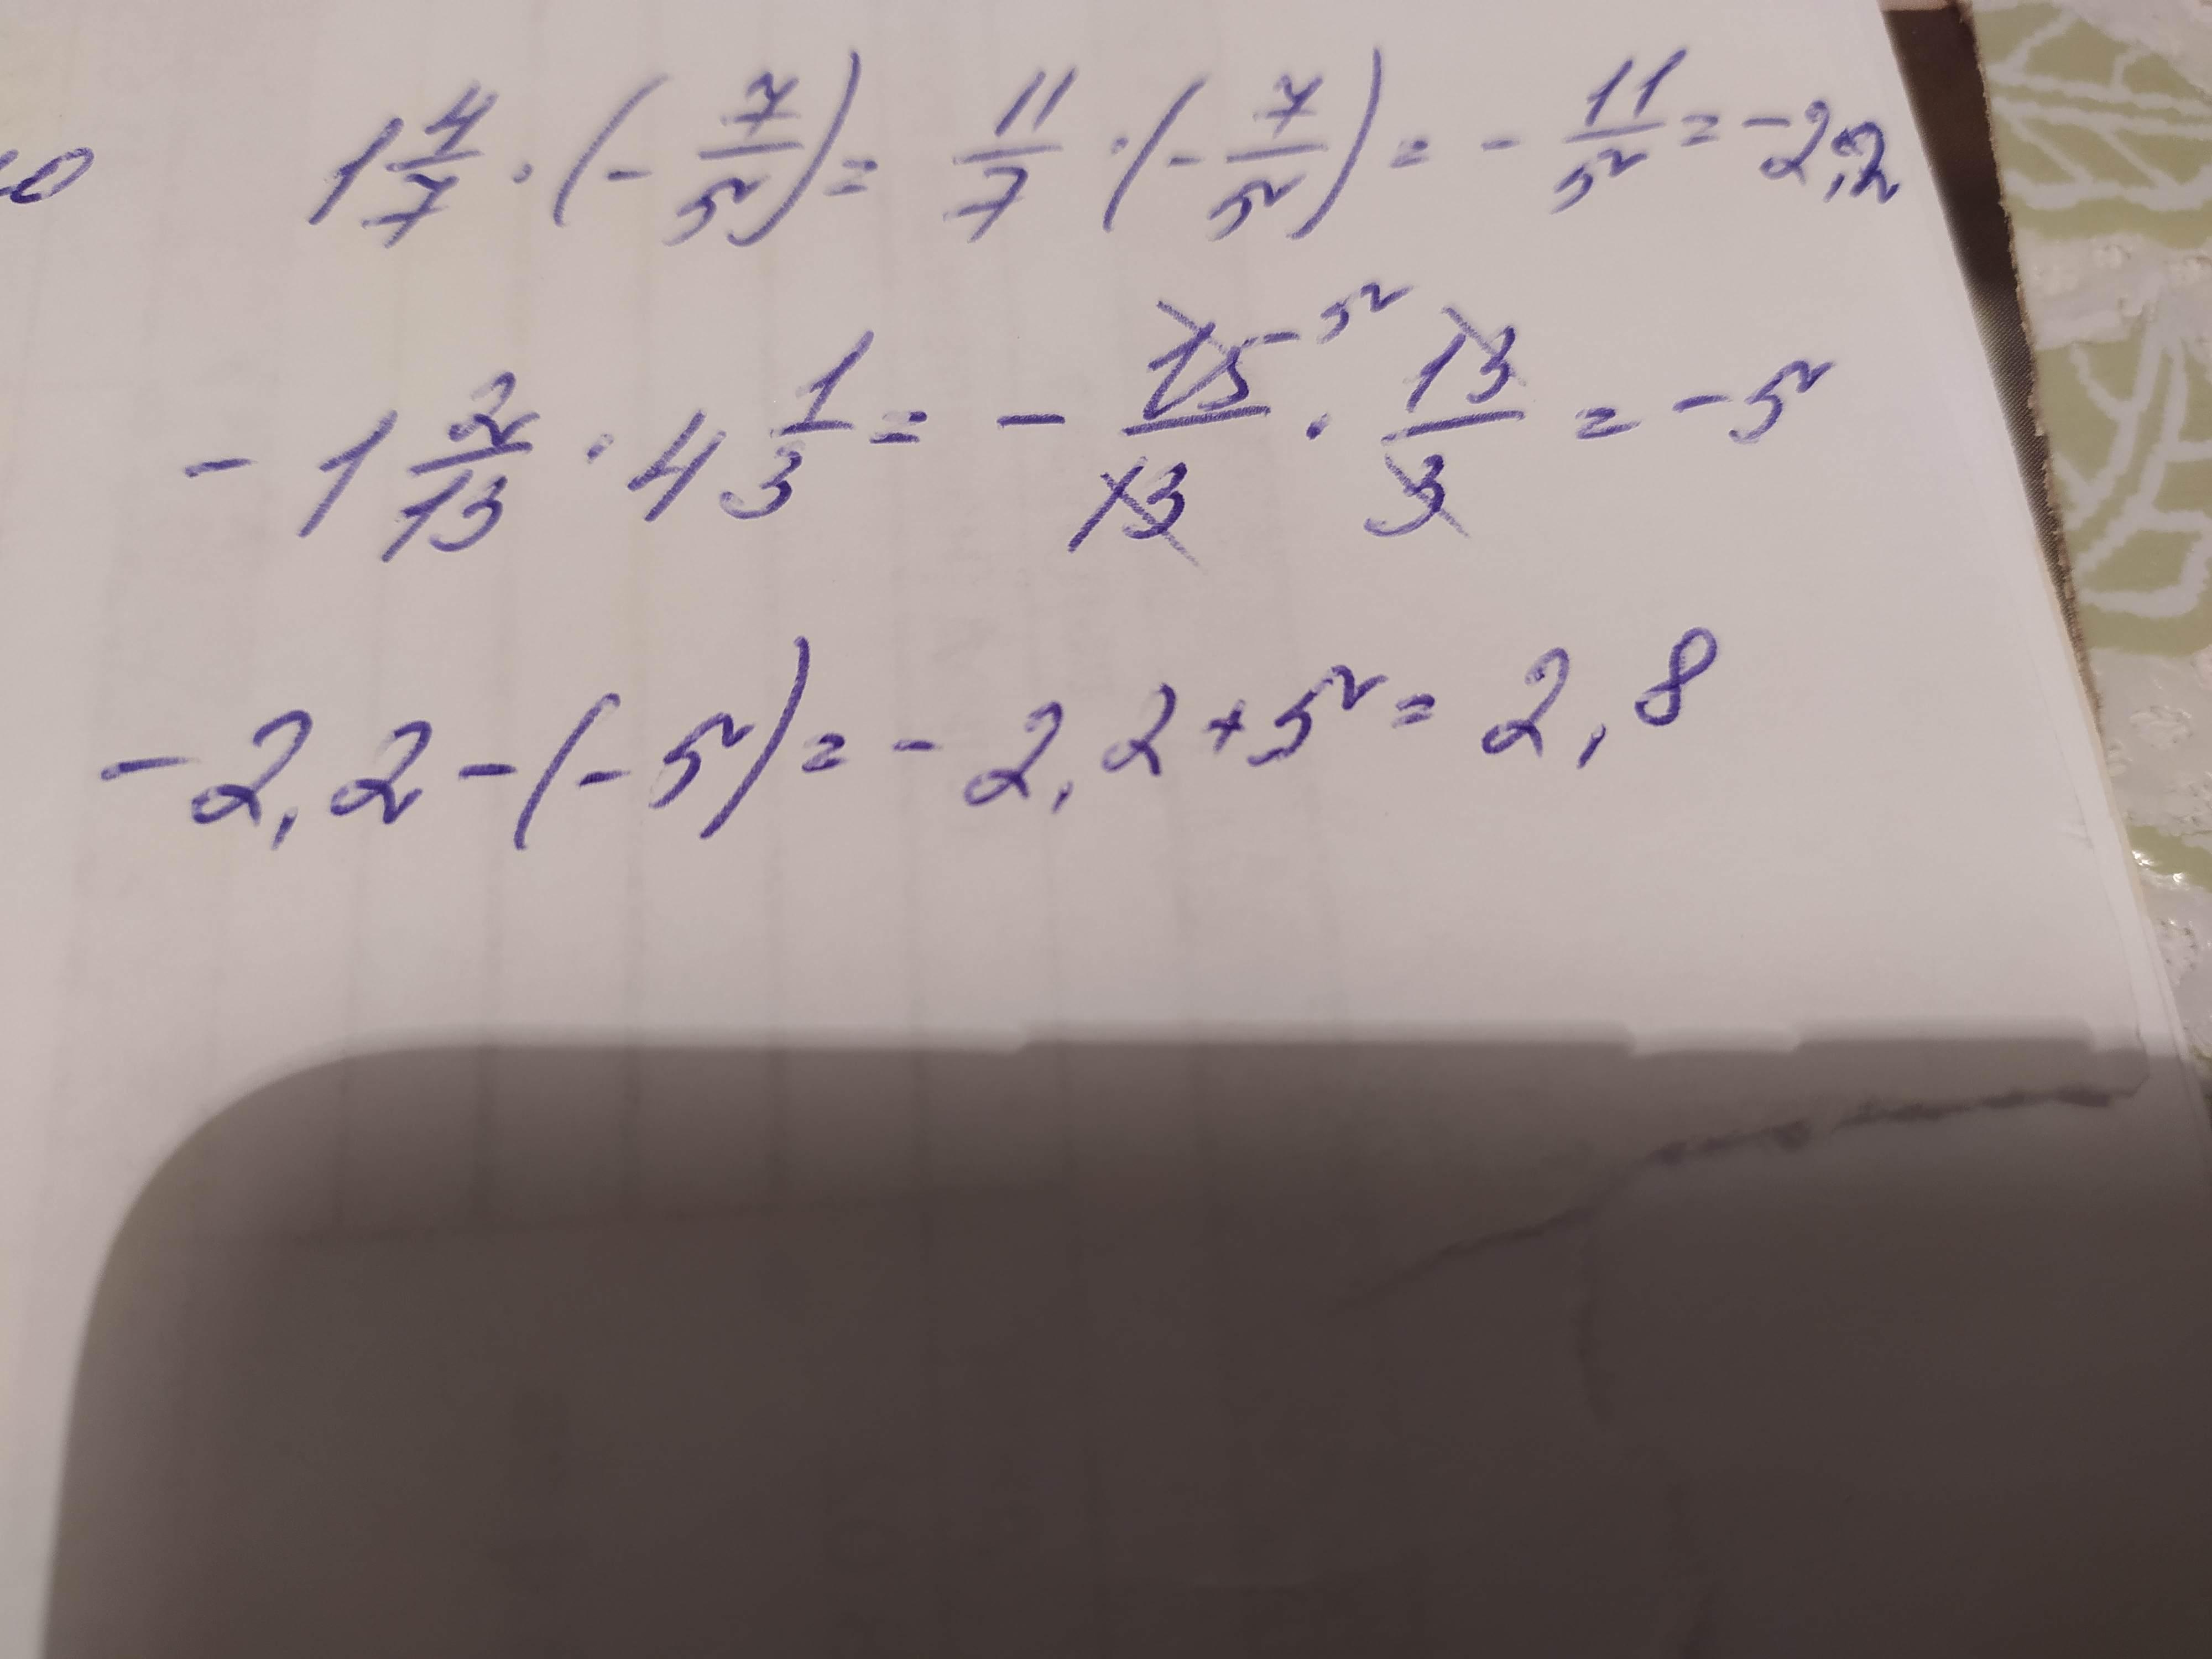 1 4/7 · (- 7/5) = 11/7 · (- 7/5) = - 11/5 = -2,2
- 1 2/13 · 4 1/3 = - 15/13 5 · 13/3 = - 5
- 2,2 - (- 5) = - 2,2 + 5 = 2,8